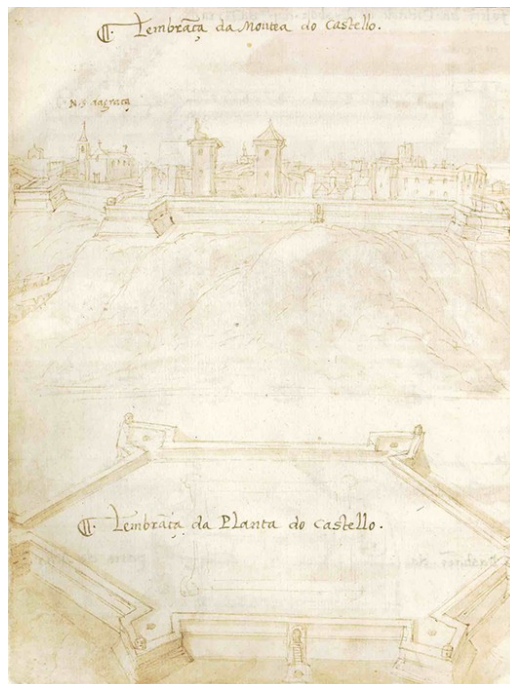 ¶. Lembrãça da Montea do Castello.
N. S. dagraça
¶. Lembrãça da Planta do Castello.